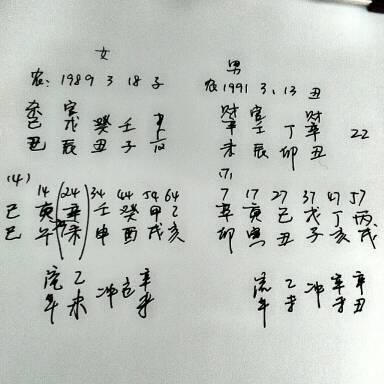 女
农: 1989 3 18 子
官
己 戊 癸 壬
丑 辰 丑 子
(4)
14 24 34 44 54 64
己 庚 辛 壬 癸 甲 乙
巳 午 未 申 酉 戌 亥
流 乙 冲 辛
年 未 未
男
农 1991 3、13 丑
财 官 财
辛 壬 丁 辛 22
未 辰 卯 丑
(7)
7 17 27 37 47 57
辛 庚 己 戊 丁 丙
卯 寅 丑 子 亥 戌
流 乙 冲 辛 辛
年 未 未 丑